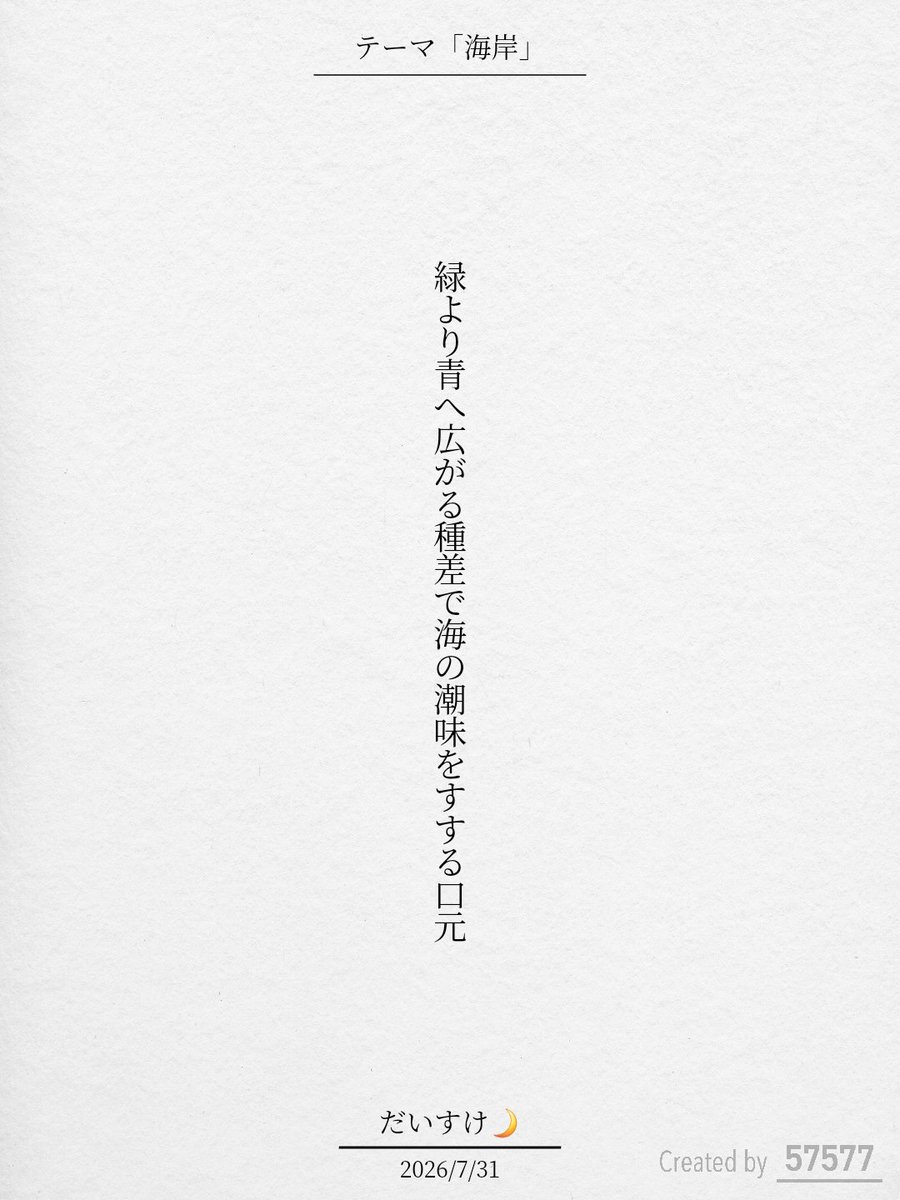 テーマ「海岸」
緑より青へ広がる種差で海の潮味をすする口元
だいすけ🌙
2026/7/31
Created by 57577